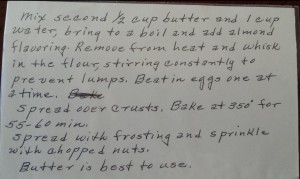 Mix second 1/2 cup butter and 1 cup
water, bring to a boil and add almond
flavoring. Remove from heat and whisk
in the flour, stirring constantly to
prevent lumps. Beat in eggs one at
a time.
Spread over crusts. Bake at 350° for
55-60 min.
Spread with frosting and sprinkle
with chopped nuts.
Butter is best to use.